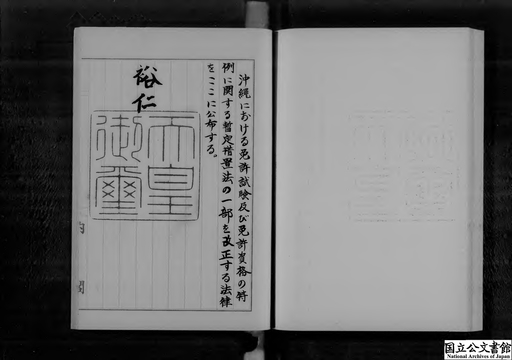 沖縄における免許試験及び免許資格の特
例に関する暫定措置法の一部を改正する法律
をここに公布する。
裕仁
天皇
御璽
内閣
国立公文書館
National Archives of Japan